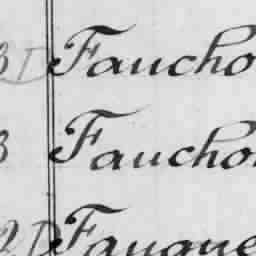 3 D Faucho
3 Faucho
2 D Fauque